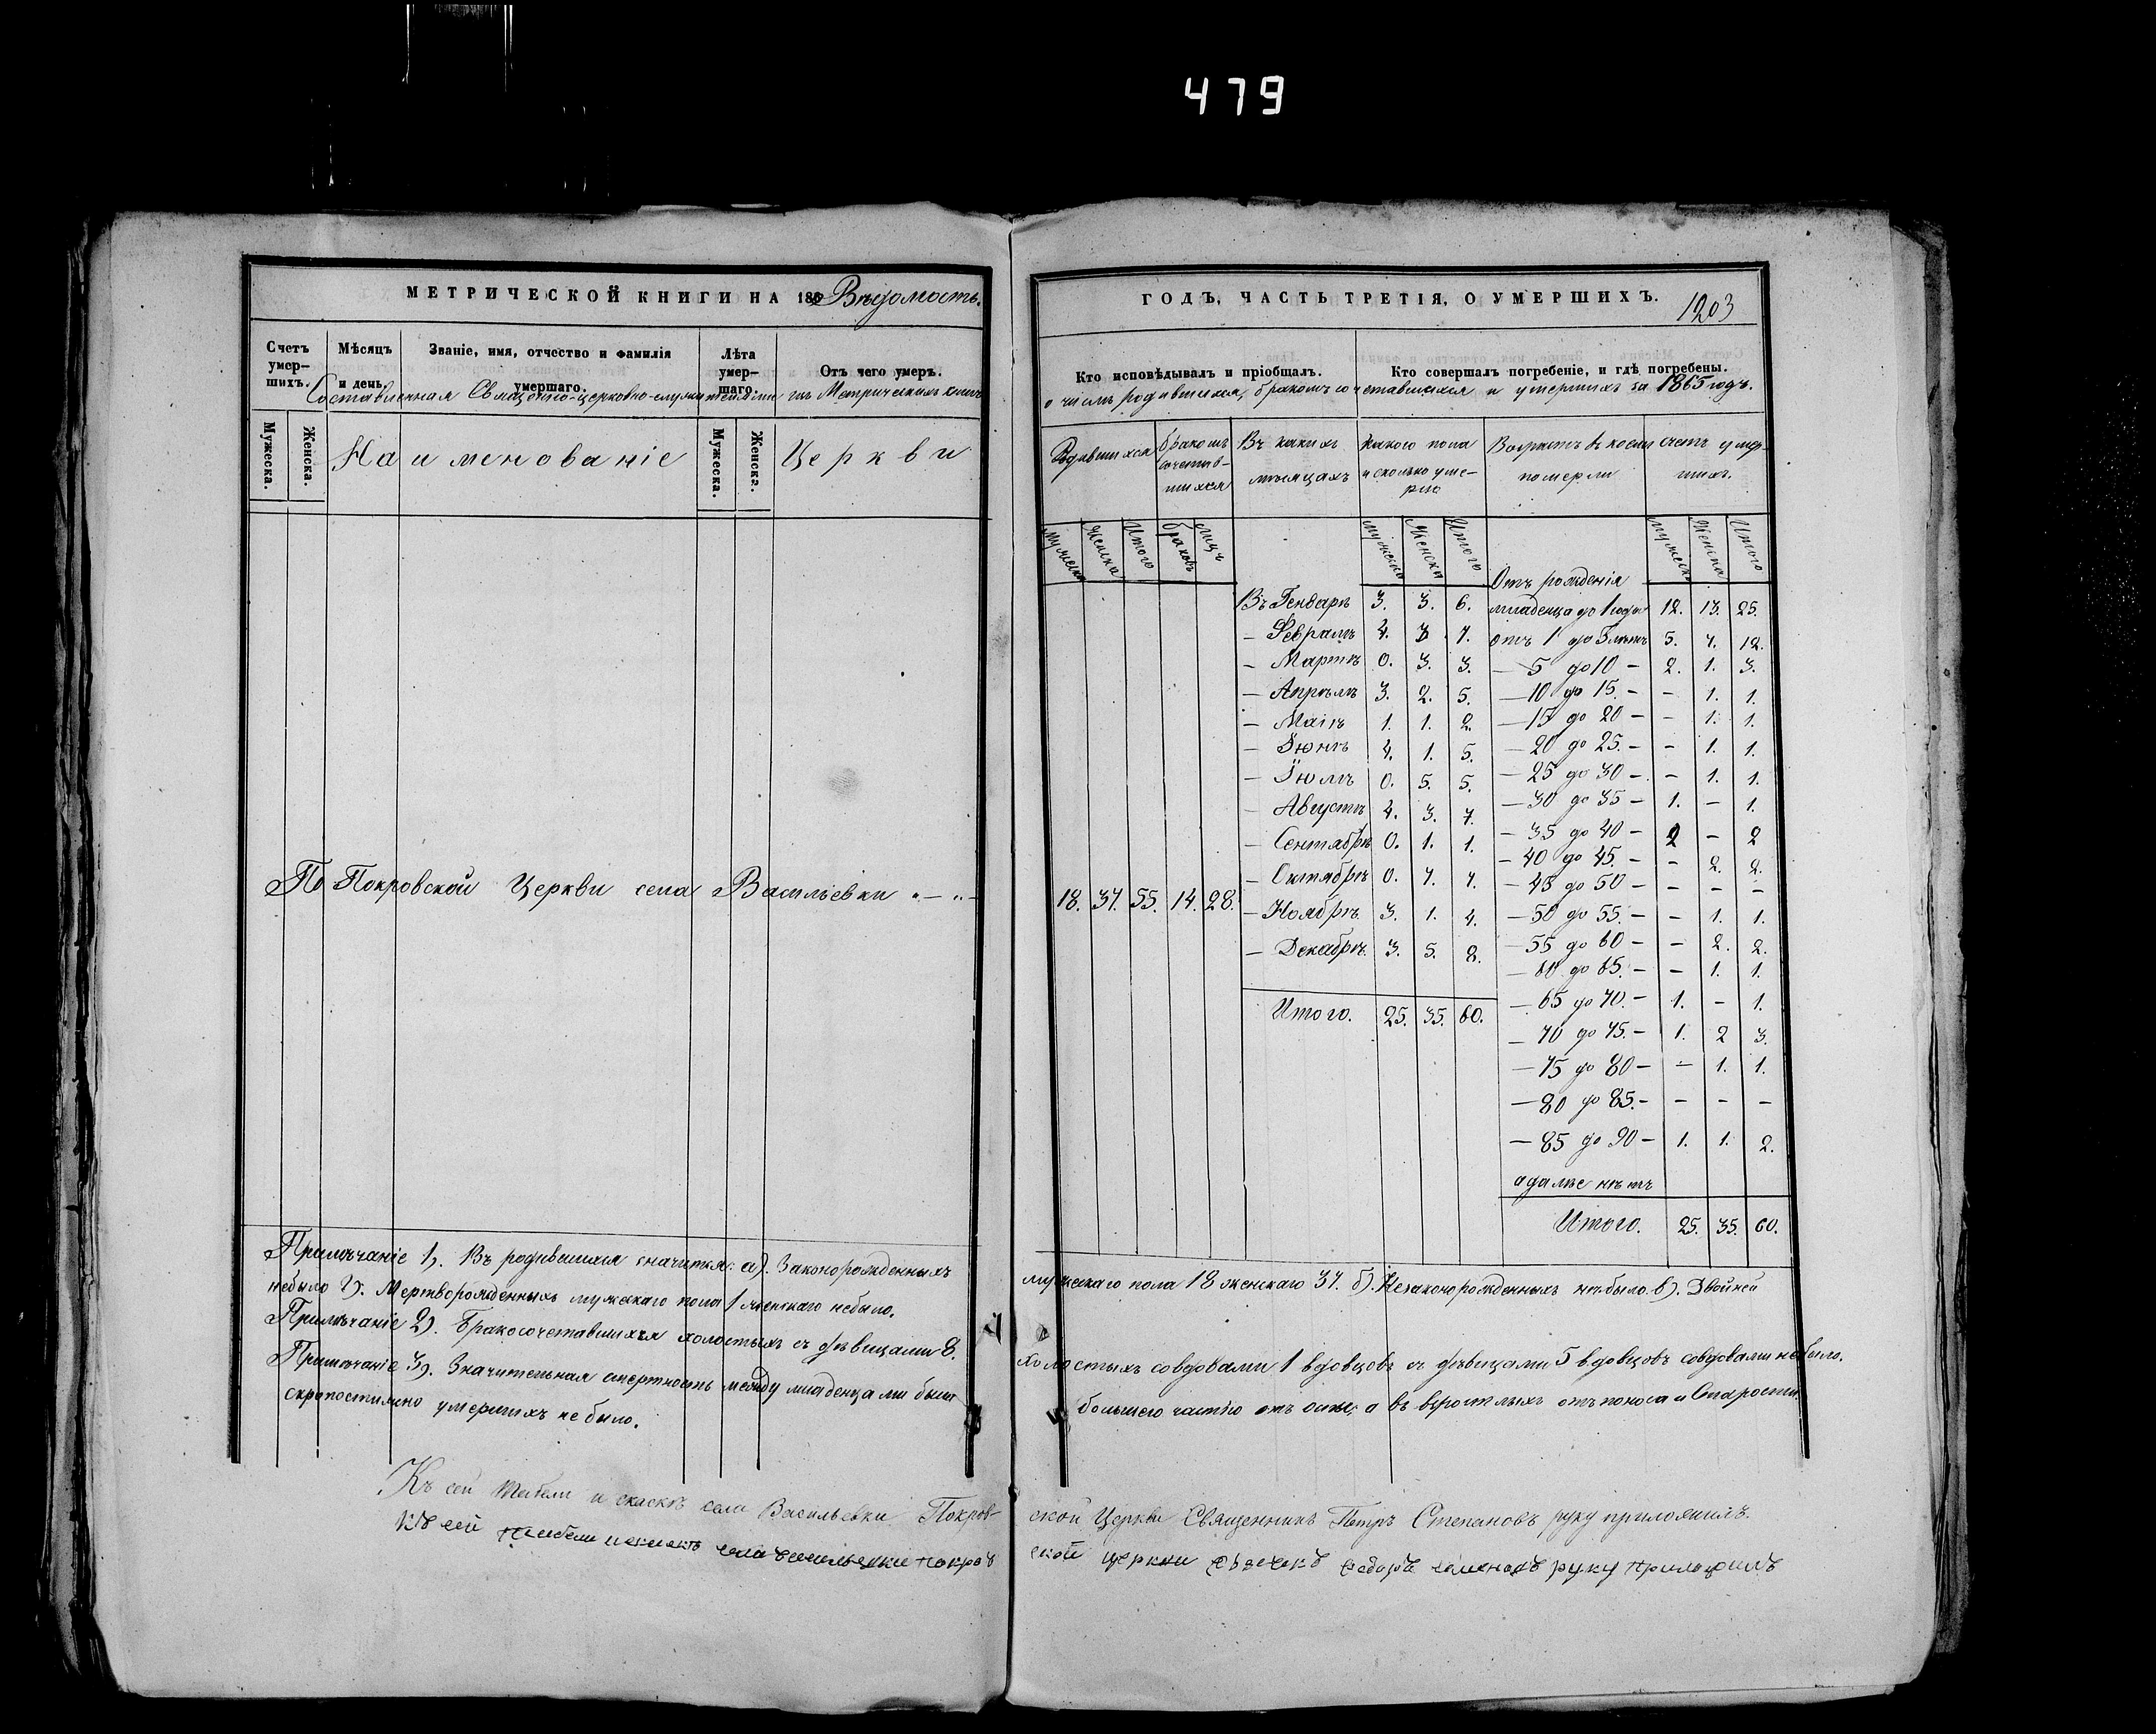 479
МЕТРИЧЕСКОЙ КНИГИ НА 186 Вѣдомость.
ГОДЪ, ЧАСТЬ ТРЕТІЯ, О УМЕРШИХЪ.
1203
Счетъ умер-шихъ. Мѣсяцъ и день. Званіе, имя, отчество и фамилія умершаго. Лѣта умер-шаго. Отъ чего умеръ.
Кто исповѣдывалъ и пріобщалъ. Кто совершалъ погребеніе, и гдѣ погребены.
Составленная Священно-церковно-служителями изъ Метрическихъ книгъ
о числѣ родившихся, бракомъ сочетавшихся и умершихъ за 1865 годъ.
Мужеска. Женска. Мужеска. Женска.
Наименованіе Церкви
Родившихся
Бракомъ сочетав-шихся
Въ какихъ мѣсяцахъ
Какого пола и сколько уме-рло
Возрастъ въ коемъ померли
счетъ умер-шихъ.
Мужеска Женска Итого Браковъ Лицъ Мужеска Женска Итого Мужеска Женска Итого
По Покровской Церкви села Васильевки
18. 37. 55. 14. 28.
Въ Генварѣ 3. 3. 6.
— Февралѣ 4. 3 7.
— Мартѣ 0. 3. 3.
— Апрѣлѣ 3. 2. 5.
— Маіѣ 1. 1. 2.
— Іюнѣ 4. 1. 5.
— Іюлѣ 0. 5. 5.
— Августѣ 4. 3. 7.
— Сентябрѣ 0. 1. 1.
— Октябрѣ 0. 7. 7.
— Ноябрѣ 3. 1. 4.
— Декабрѣ 3. 5. 8.
Итого. 25. 35. 60.
Отъ рожденія
младенца до 1 года 12. 13. 25.
отъ 1 до 5 лѣтъ 5. 7. 12.
— 5 до 10 — 2. 1. 3.
— 10 до 15. — — 1. 1.
— 15 до 20 — — 1. 1.
— 20 до 25. — — 1. 1.
— 25 до 30 — — 1. 1.
— 30 до 35 — 1. — 1.
— 35 до 40 — 2 — 2
— 40 до 45. — — 2. 2.
— 45 до 50 — — — —
— 50 до 55. — — 1. 1.
— 55 до 60 — — 2. 2.
— 60 до 65. — — 1. 1.
— 65 до 70. — 1. — 1.
— 70 до 75. — 1. 2 3.
— 75 до 80 — — 1. 1.
— 80 до 85. — — — —
— 85 до 90 — 1. 1. 2.
а далѣе нѣтъ
Итого. 25. 35. 60.
Примѣчаніе 1). Въ родившихся значится: а). Законорожденныхъ
мужескаго пола 18 женскаго 37. б). Незаконорожденныхъ небыло. в). Двойней
небыло г). Мертворожденныхъ мужскаго пола 1 женскаго небыло.
Примѣчаніе 2). Бракосочетавшихся холостыхъ съ дѣвицами 8.
холостыхъ совдовами 1 вдовцовъ съ дѣвицами 5 вдовцовъ совдовами небыло.
Примѣчаніе 3). Значительная смертность между младенцами была
большею частію отъ оспы, а въ взрослыхъ отъ поноса и старости.
скоропостижно умершихъ не было.
Къ сей табели и сказкѣ села Васильевки Покров-
ской Церкви Священникъ Петръ Степановъ руку приложилъ.
Къ сей табели села Васильевки покров
ской церкви руку приложилъ